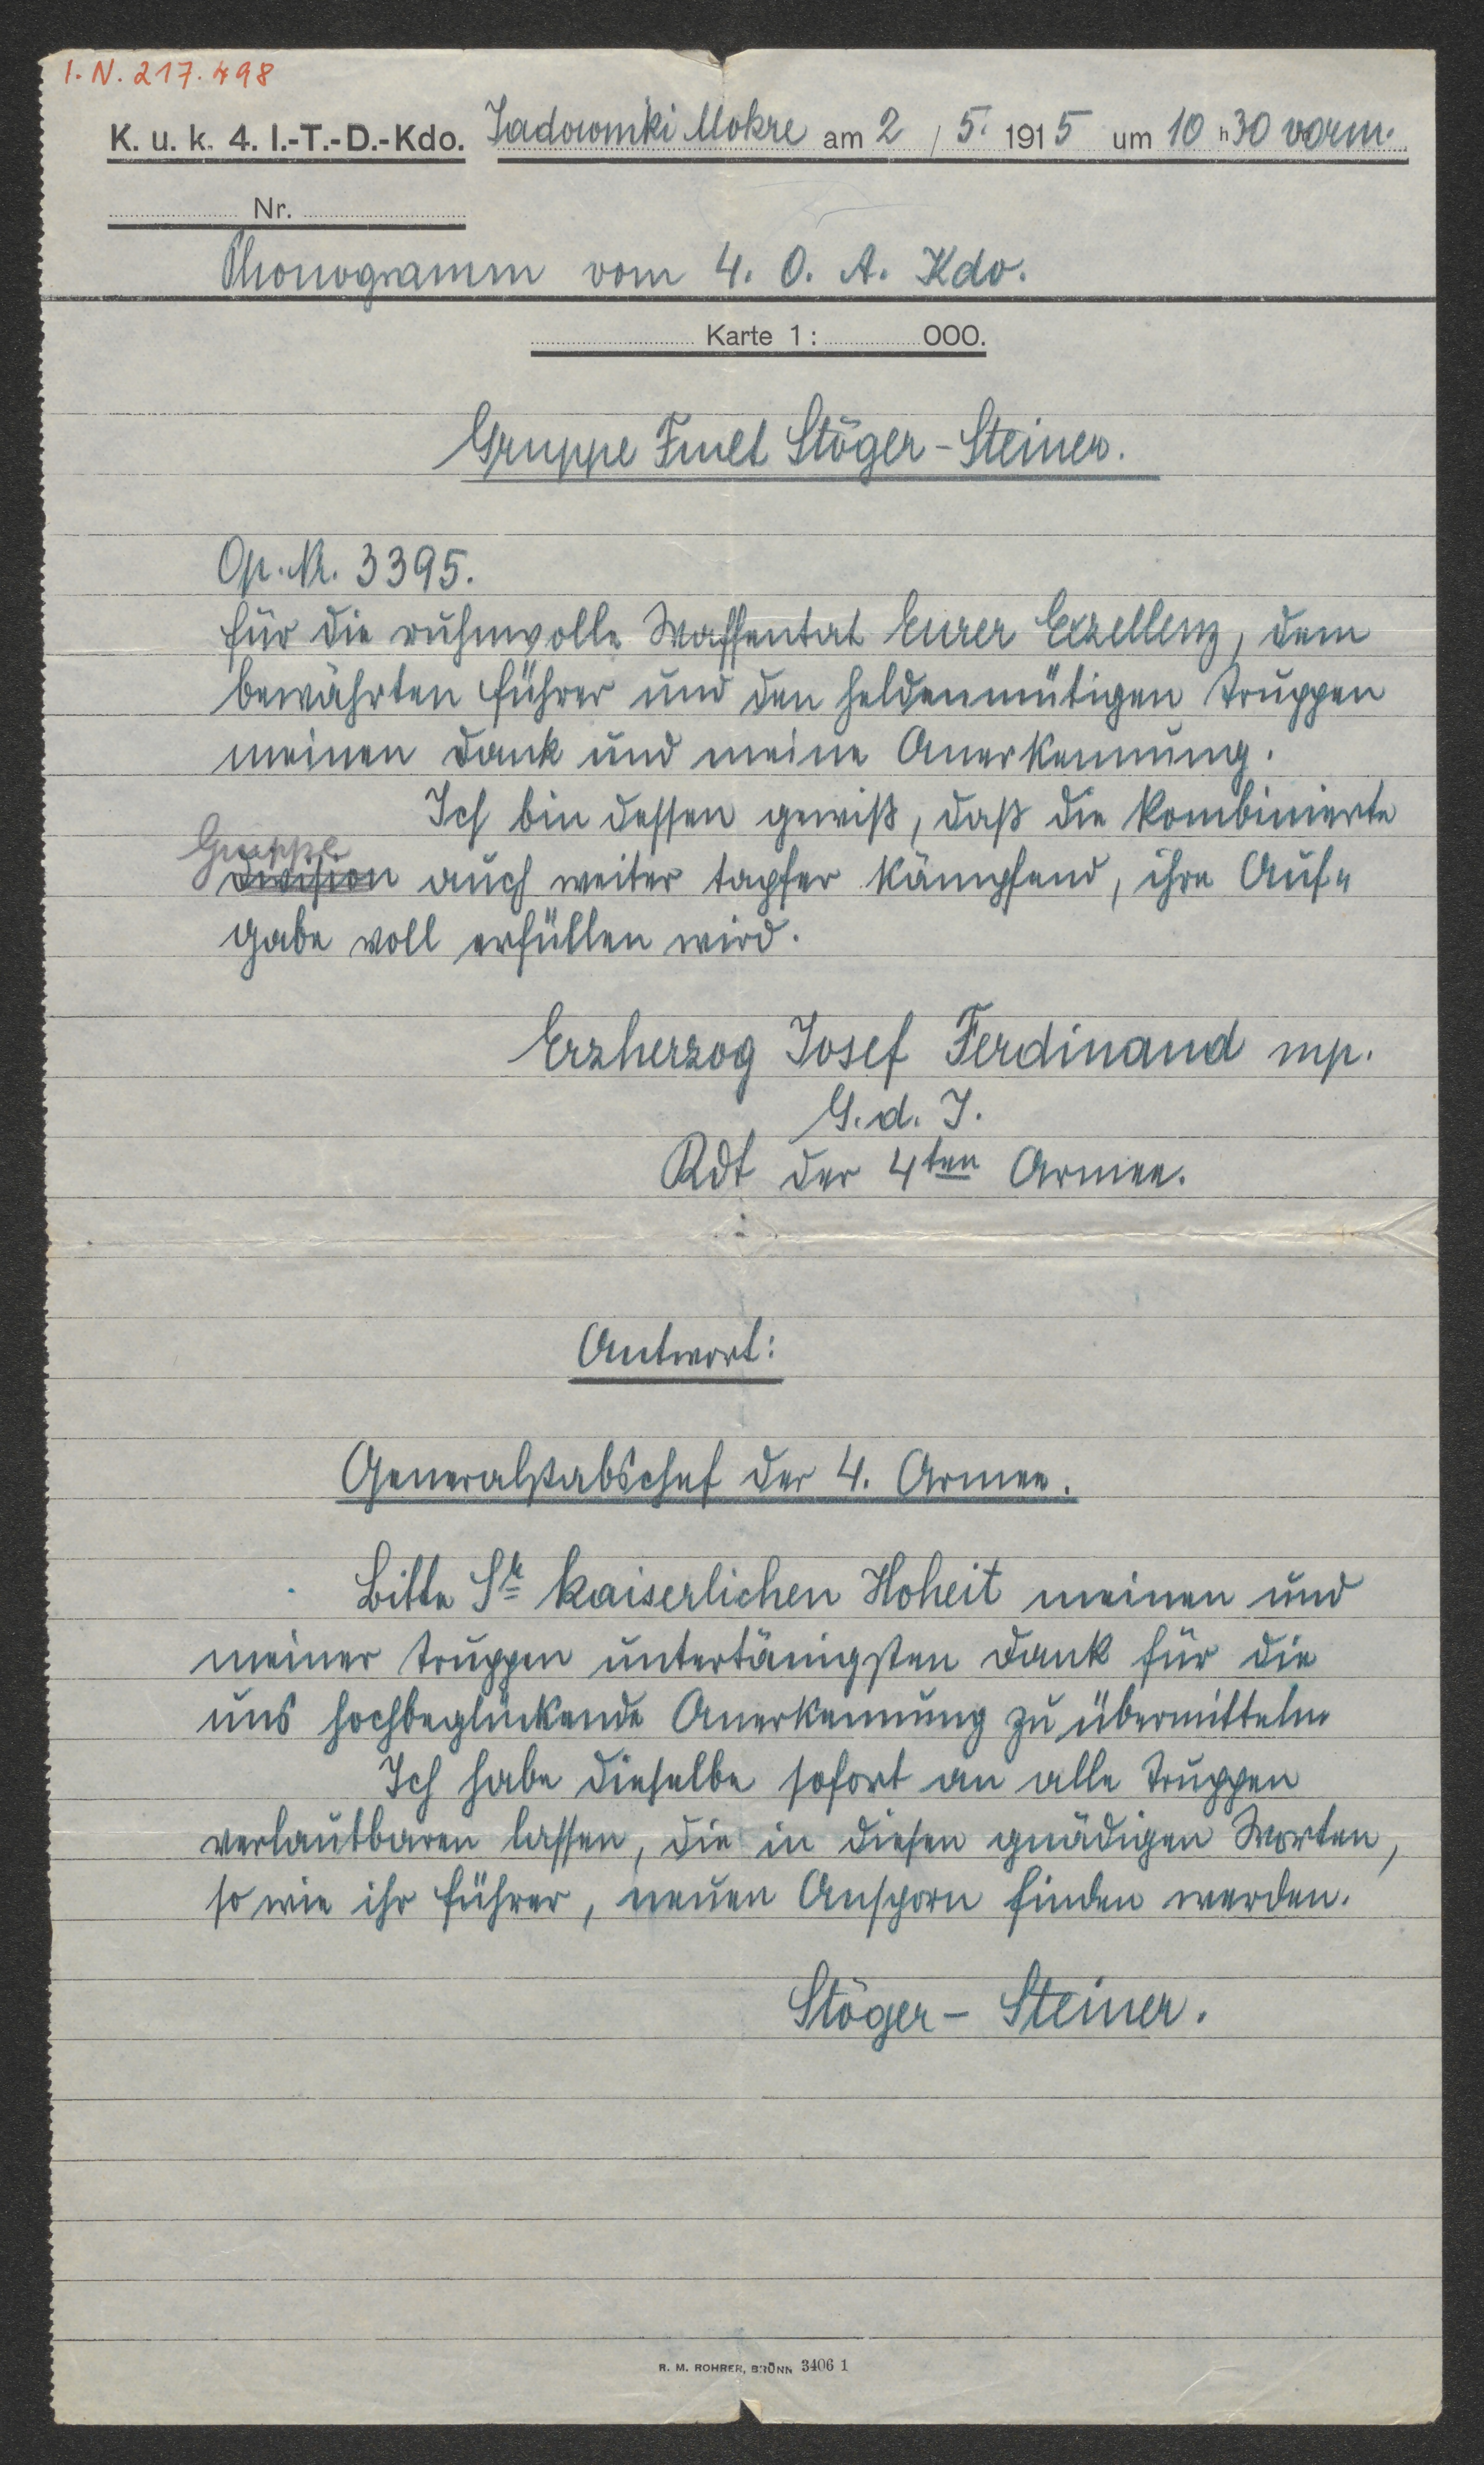 I. N. 217.498
K. u. k. 4. I.-T.-D.-Kdo. Jadowniki Mokre am 2 / 5. 1915 um 10 h 30 vorm.
Nr.
Phonogramm vom 4. O. A. Kdo.
Karte 1 : 000.
Gruppe Fmlt Stöger-Steiner.
Op. Nr. 3395.
Für die ruhmvolle Waffentat Eurer Exzellenz, dem
bewährten Führer und den heldenmütigen Truppen
meinen Dank und meine Anerkennung.
Ich bin dessen gewiß, daß die kombinierte
Gruppe
Division auch weiter tapfer kämpfend, ihre Auf-
gabe voll erfüllen wird.
Erzherzog Josef Ferdinand mp.
G. d. I.
Kdt der 4ten Armee.
Antwort:
Generalstabschef der 4. Armee.
Bitte Sr kaiserlichen Hoheit meinen und
meiner Truppen untertänigsten Dank für die
uns hochbeglückende Anerkennung zu übermitteln.
Ich habe dieselbe sofort an alle Truppen
verlautbaren lassen, die in diesen gnädigen Worten,
so wie ihr Führer, neuen Ansporn finden werden.
Stöger-Steiner.
R. M. ROHRER, BRÜNN 3406 1